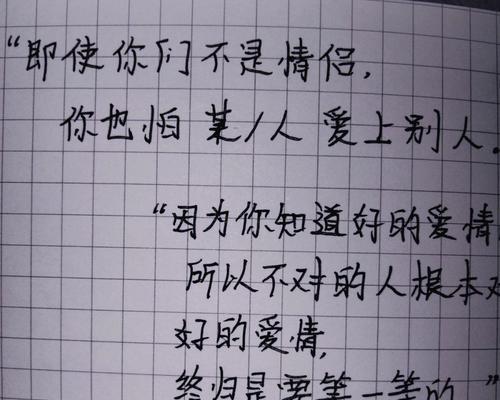 “即使你们不是情侣,
你也怕某/人爱上别人.
“因为你知道好的爱情
所以不对的人根本
好的爱情,
终归是要等一等的.”